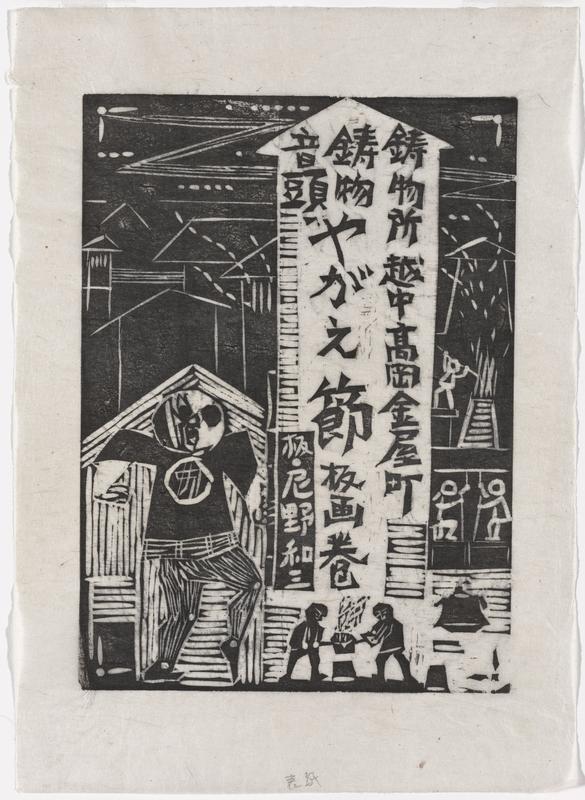 鋳物所 越中高岡金屋町
鋳物やがえ節 板画巻
音頭
板・尼野和三
表紙